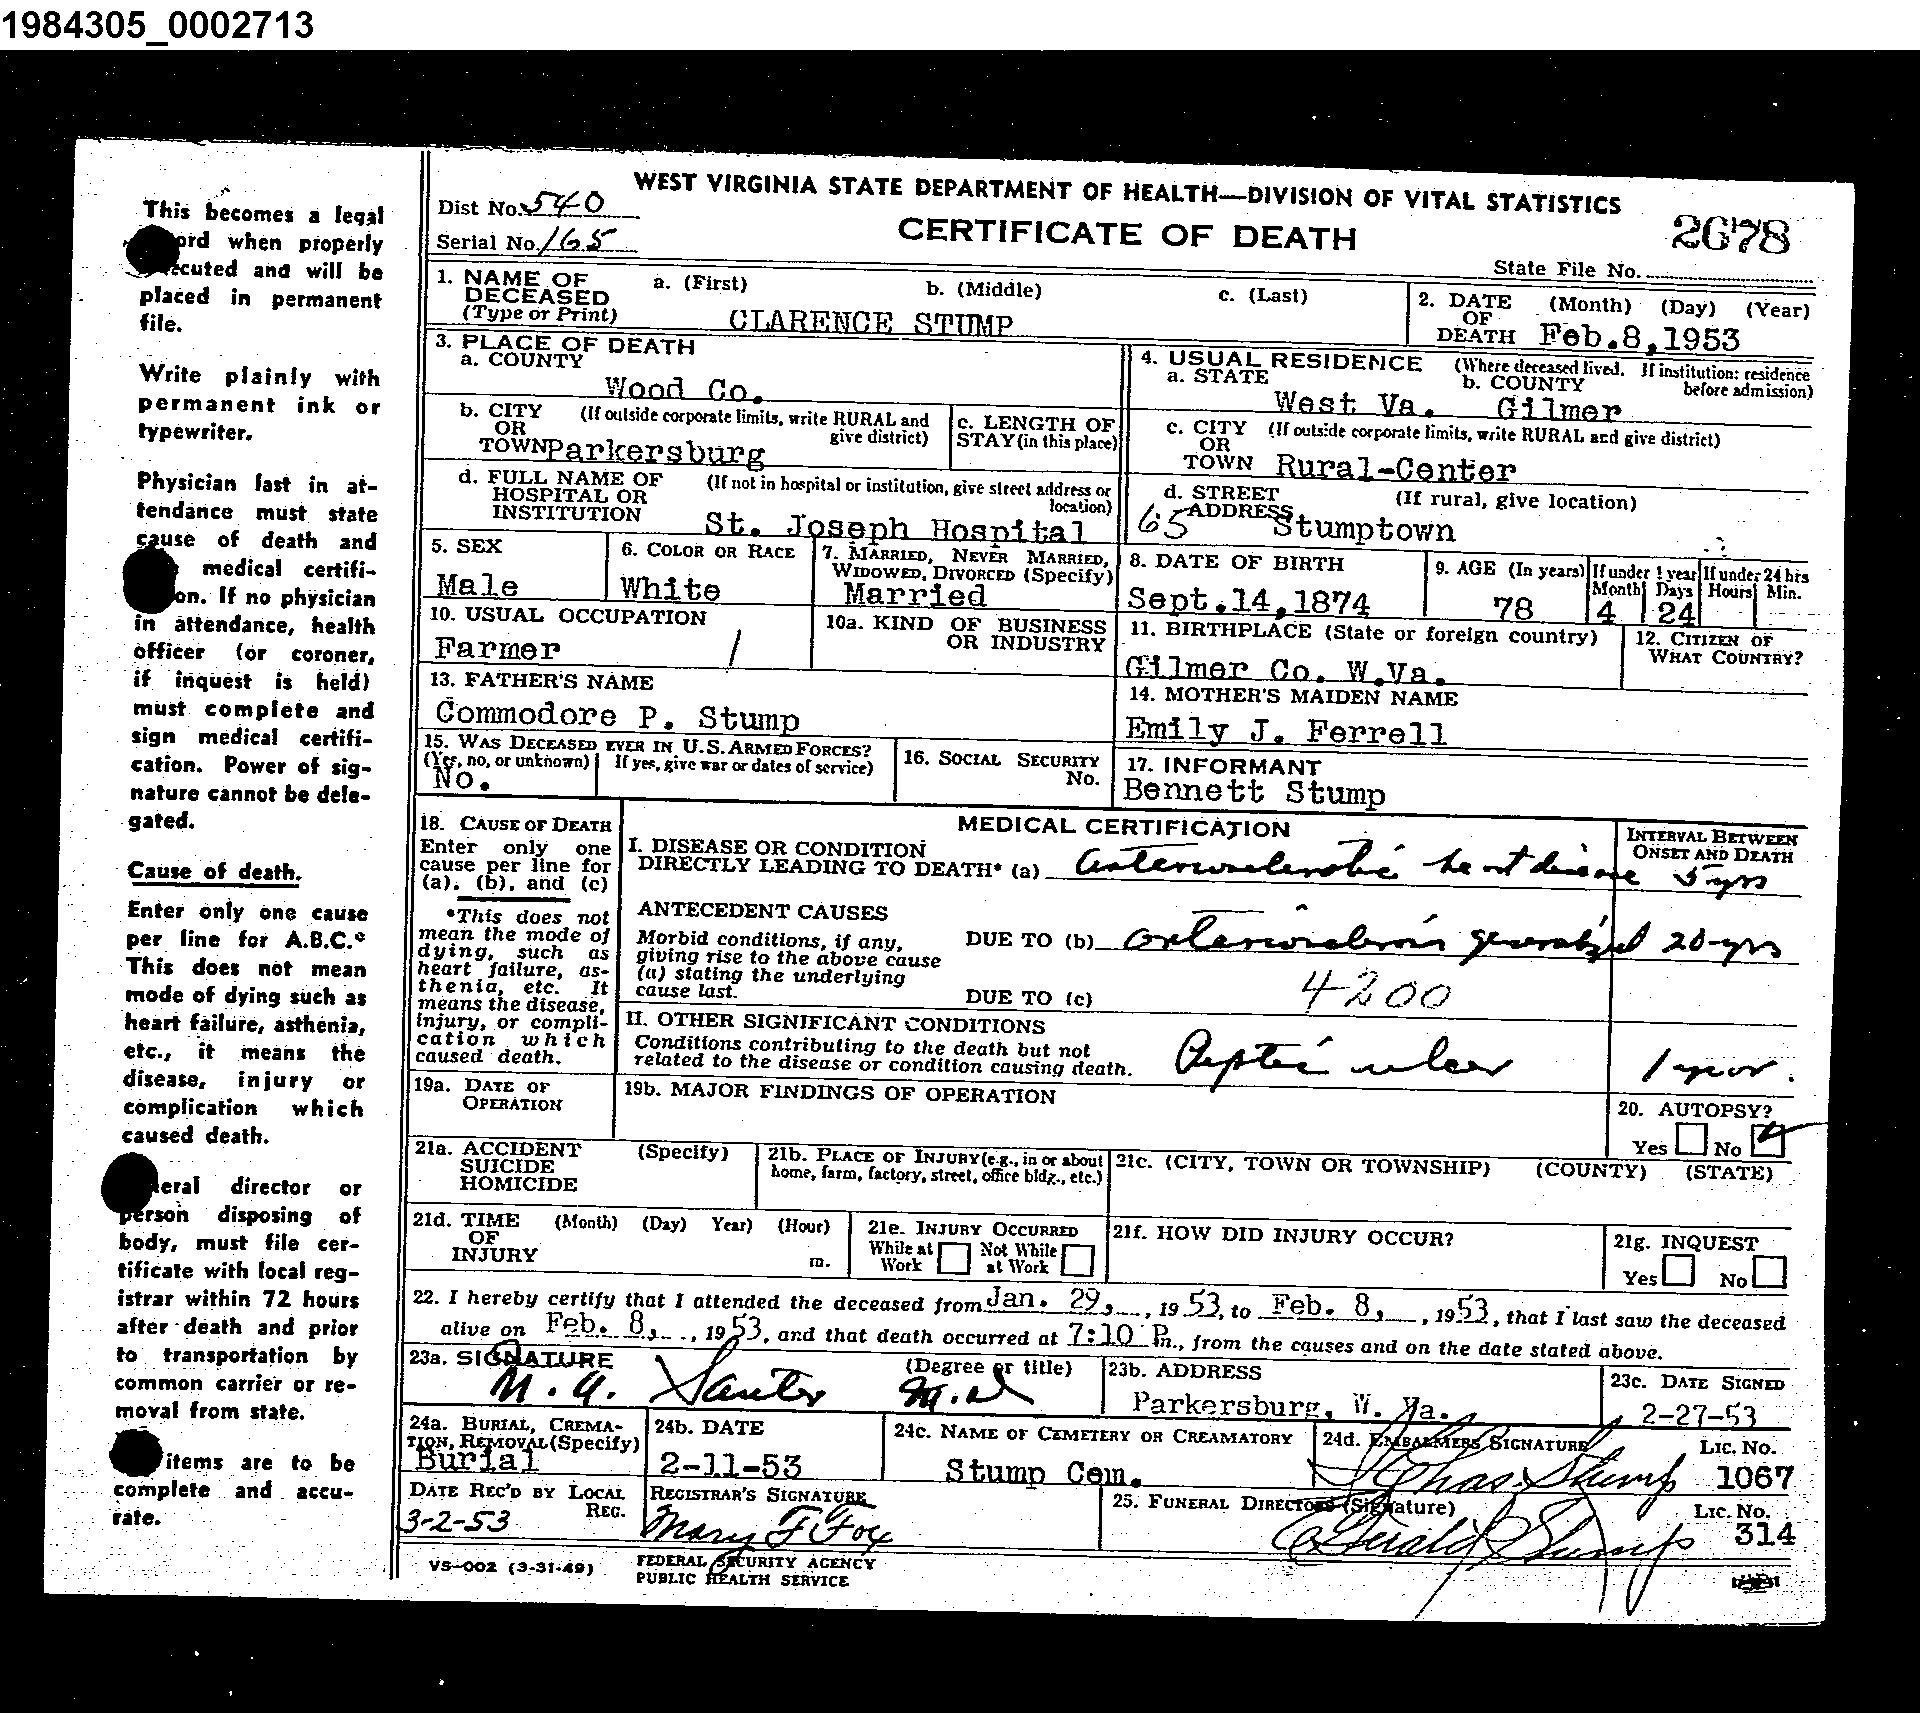 1984305_0002713
This becomes a legal
ord when properly
ecuted and will be
placed in permanent
file.
Write plainly with
permanent ink or
typewriter.
Physician last in at-
tendance must state
cause of death and
medical certifi-
on. If no physician
in attendance, health
officer (or coroner,
if inquest is held)
must complete and
sign medical certifi-
cation. Power of sig-
nature cannot be dele-
gated.
Cause of death.
Enter only one cause
per line for A.B.C.*
This does not mean
mode of dying such as
heart failure, asthenia,
etc., it means the
disease, injury or
complication which
caused death.
eral director or
person disposing of
body, must file cer-
tificate with local reg-
istrar within 72 hours
after death and prior
to transportation by
common carrier or re-
moval from state.
items are to be
complete and accu-
rate.
WEST VIRGINIA STATE DEPARTMENT OF HEALTH—DIVISION OF VITAL STATISTICS
Dist No. 540
CERTIFICATE OF DEATH
2678
Serial No. 165
State File No.
1. NAME OF DECEASED (Type or Print) a. (First) b. (Middle) c. (Last)
CLARENCE STUMP
2. DATE OF DEATH (Month) (Day) (Year)
Feb.8,1953
3. PLACE OF DEATH
a. COUNTY
Wood Co.
4. USUAL RESIDENCE (Where deceased lived. If institution: residence before admission)
a. STATE b. COUNTY
West Va. Gilmer
b. CITY OR TOWN (If outside corporate limits, write RURAL and give district)
Parkersburg
c. LENGTH OF STAY (in this place)
c. CITY OR TOWN (If outside corporate limits, write RURAL and give district)
Rural-Center
d. FULL NAME OF HOSPITAL OR INSTITUTION (If not in hospital or institution, give street address or location)
St. Joseph Hospital
d. STREET ADDRESS (If rural, give location)
65 Stumptown
5. SEX
Male
6. COLOR OR RACE
White
7. MARRIED, NEVER MARRIED, WIDOWED, DIVORCED (Specify)
Married
8. DATE OF BIRTH
Sept.14,1874
9. AGE (In years)
78
If under 1 year
Month Days
4 24
If under 24 hrs
Hours Min.
10. USUAL OCCUPATION
Farmer /
10a. KIND OF BUSINESS OR INDUSTRY
11. BIRTHPLACE (State or foreign country)
Gilmer Co. W.Va.
12. CITIZEN OF WHAT COUNTRY?
13. FATHER'S NAME
Commodore P. Stump
14. MOTHER'S MAIDEN NAME
Emily J. Ferrell
15. WAS DECEASED EVER IN U.S. ARMED FORCES?
(Yes, no, or unknown) If yes, give war or dates of service)
No.
16. SOCIAL SECURITY No.
17. INFORMANT
Bennett Stump
18. CAUSE OF DEATH
Enter only one
cause per line for
(a), (b), and (c)
*This does not
mean the mode of
dying, such as
heart failure, as-
thenia, etc. It
means the disease,
injury, or compli-
cation which
caused death.
MEDICAL CERTIFICATION
INTERVAL BETWEEN ONSET AND DEATH
I. DISEASE OR CONDITION
DIRECTLY LEADING TO DEATH* (a) arteriosclerotic heart disease 5 yrs
ANTECEDENT CAUSES
Morbid conditions, if any,
giving rise to the above cause
(a) stating the underlying
cause last.
DUE TO (b) arteriosclerosis generalized 20 yrs
DUE TO (c) 4200
II. OTHER SIGNIFICANT CONDITIONS
Conditions contributing to the death but not
related to the disease or condition causing death.
Peptic ulcer 1 year.
19a. DATE OF OPERATION
19b. MAJOR FINDINGS OF OPERATION
20. AUTOPSY?
Yes No
21a. ACCIDENT SUICIDE HOMICIDE (Specify)
21b. PLACE OF INJURY (e.g., in or about home, farm, factory, street, office bldg., etc.)
21c. (CITY, TOWN OR TOWNSHIP) (COUNTY) (STATE)
21d. TIME OF INJURY (Month) (Day) Year) (Hour) m.
21e. INJURY OCCURRED
While at Work Not While at Work
21f. HOW DID INJURY OCCUR?
21g. INQUEST
Yes No
22. I hereby certify that I attended the deceased from Jan. 29, , 19 53, to Feb. 8, , 19 53, that I last saw the deceased
alive on Feb. 8, , 19 53, and that death occurred at 7:10 P.m., from the causes and on the date stated above.
23a. SIGNATURE (Degree or title)
Santer M.D
23b. ADDRESS
Parkersburg, W. Va.
23c. DATE SIGNED
2-27-53
24a. BURIAL, CREMATION, REMOVAL (Specify)
Burial
24b. DATE
2-11-53
24c. NAME OF CEMETERY OR CREAMATORY
Stump Cem.
24d. EMBALMERS SIGNATURE LIC. NO.
Chas. Stump 1067
DATE REC'D BY LOCAL REG.
3-2-53
REGISTRAR'S SIGNATURE
Mary F Fox
25. FUNERAL DIRECTORS (Signature) LIC. NO.
Gerald Stump 314
VS-002 (3-31-49)
FEDERAL SECURITY AGENCY
PUBLIC HEALTH SERVICE